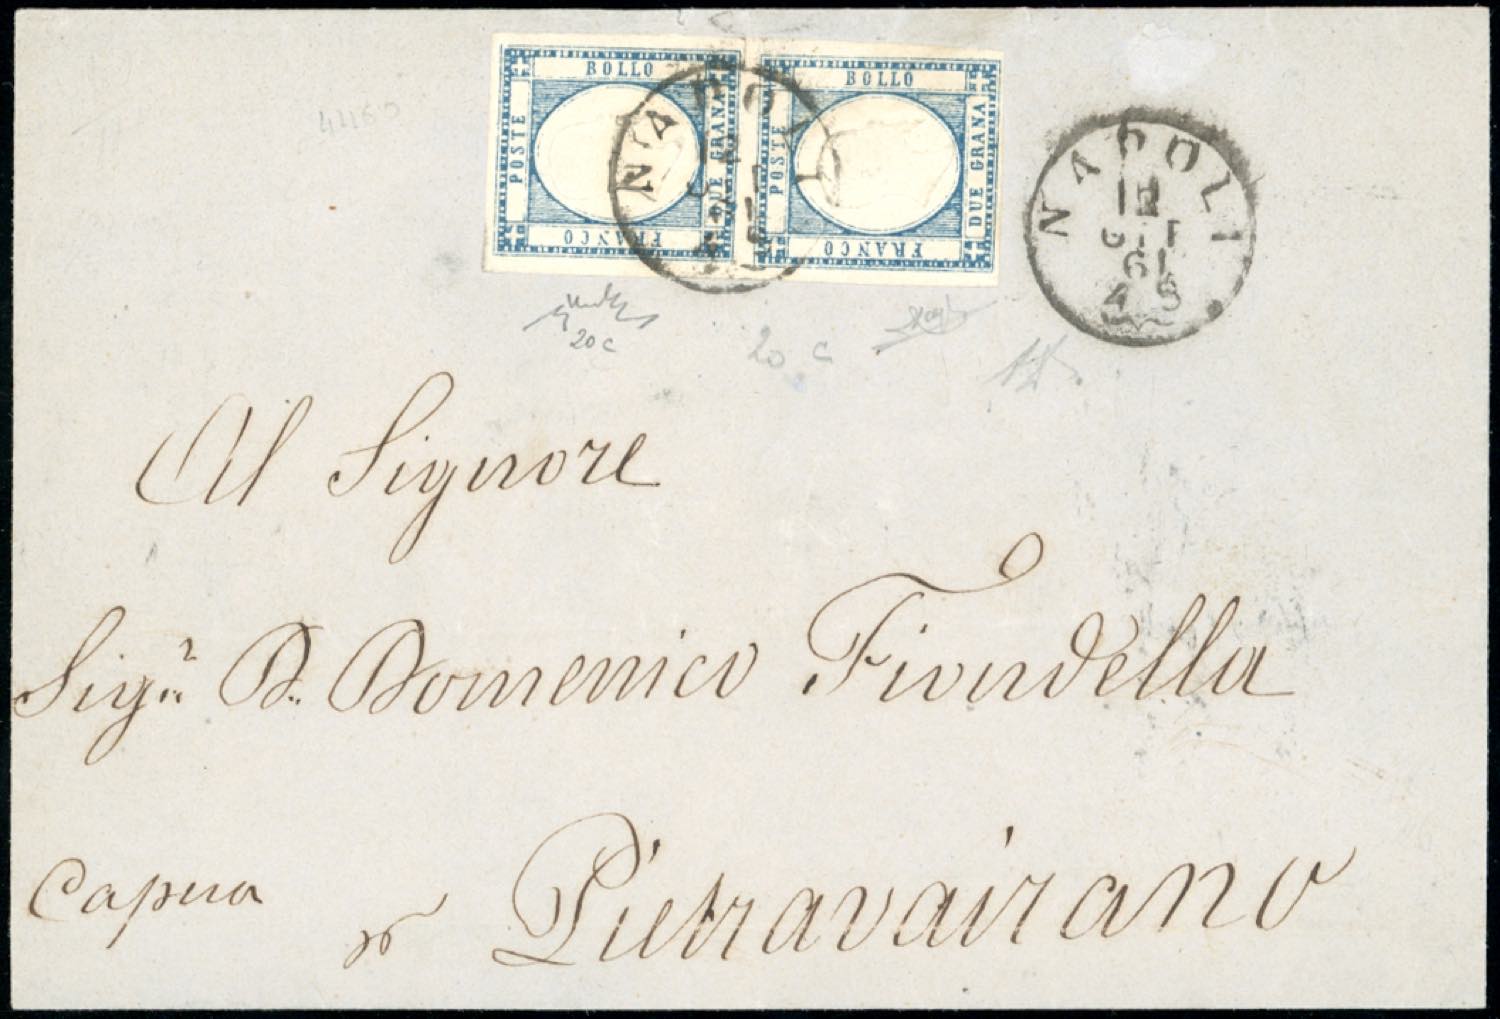 BOLLO BOLLO
POSTE DUE GRANA POSTE DUE GRANA
FRANCO FRANCO
NAPOLI
NAPOLI
61
4 S
20 c
20 c
Al Signore
Sig.r D. Domenico Fiondella
Capua
Pietravairano